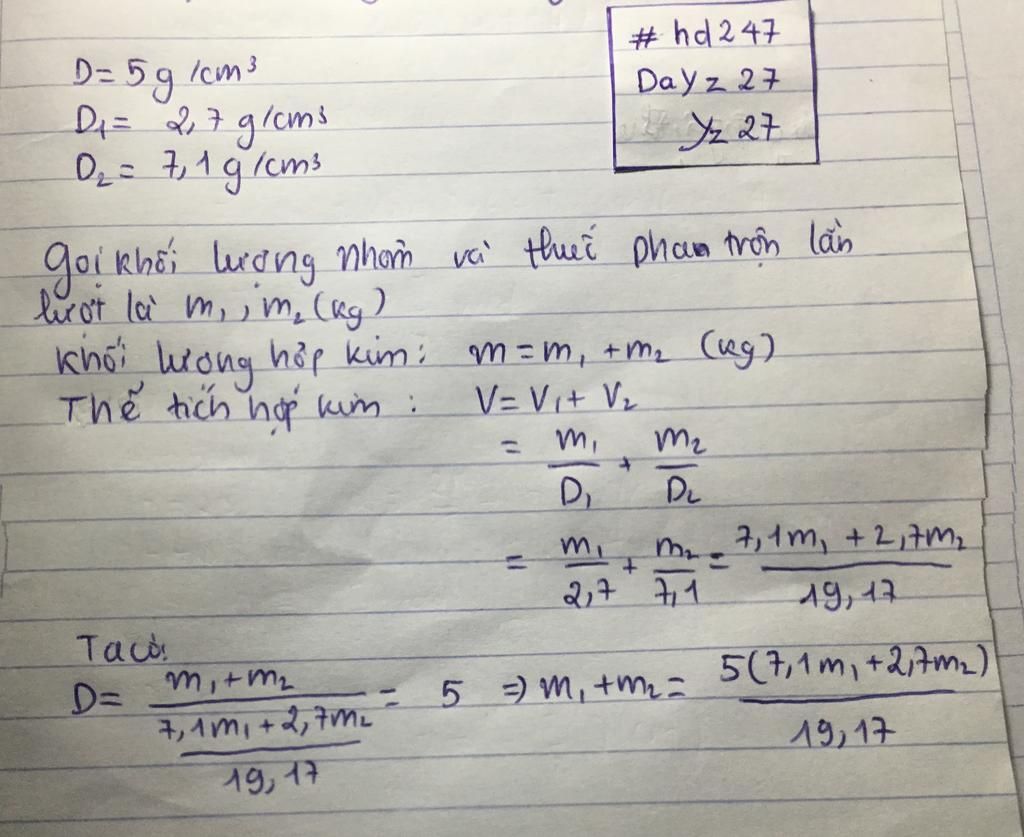 D = 5 g /cm³
D₁ = 2,7 g/cm³
D₂ = 7,1 g/cm³
# hd247
DaYz 27
Yz 27
Gọi khối lượng nhôm và thiếc phan trộn lần
lượt là m₁, m₂ (kg)
Khối lượng hợp kim: m = m₁ + m₂ (kg)
Thể tích hợp kim : V = V₁ + V₂
= m₁/D₁ + m₂/D₂
= m₁/2,7 + m₂/7,1 = (7,1m₁ + 2,7m₂)/19,17
Ta có:
D = (m₁ + m₂)/((7,1m₁ + 2,7m₂)/19,17) = 5 ⇒ m₁ + m₂ = 5(7,1m₁ + 2,7m₂)/19,17